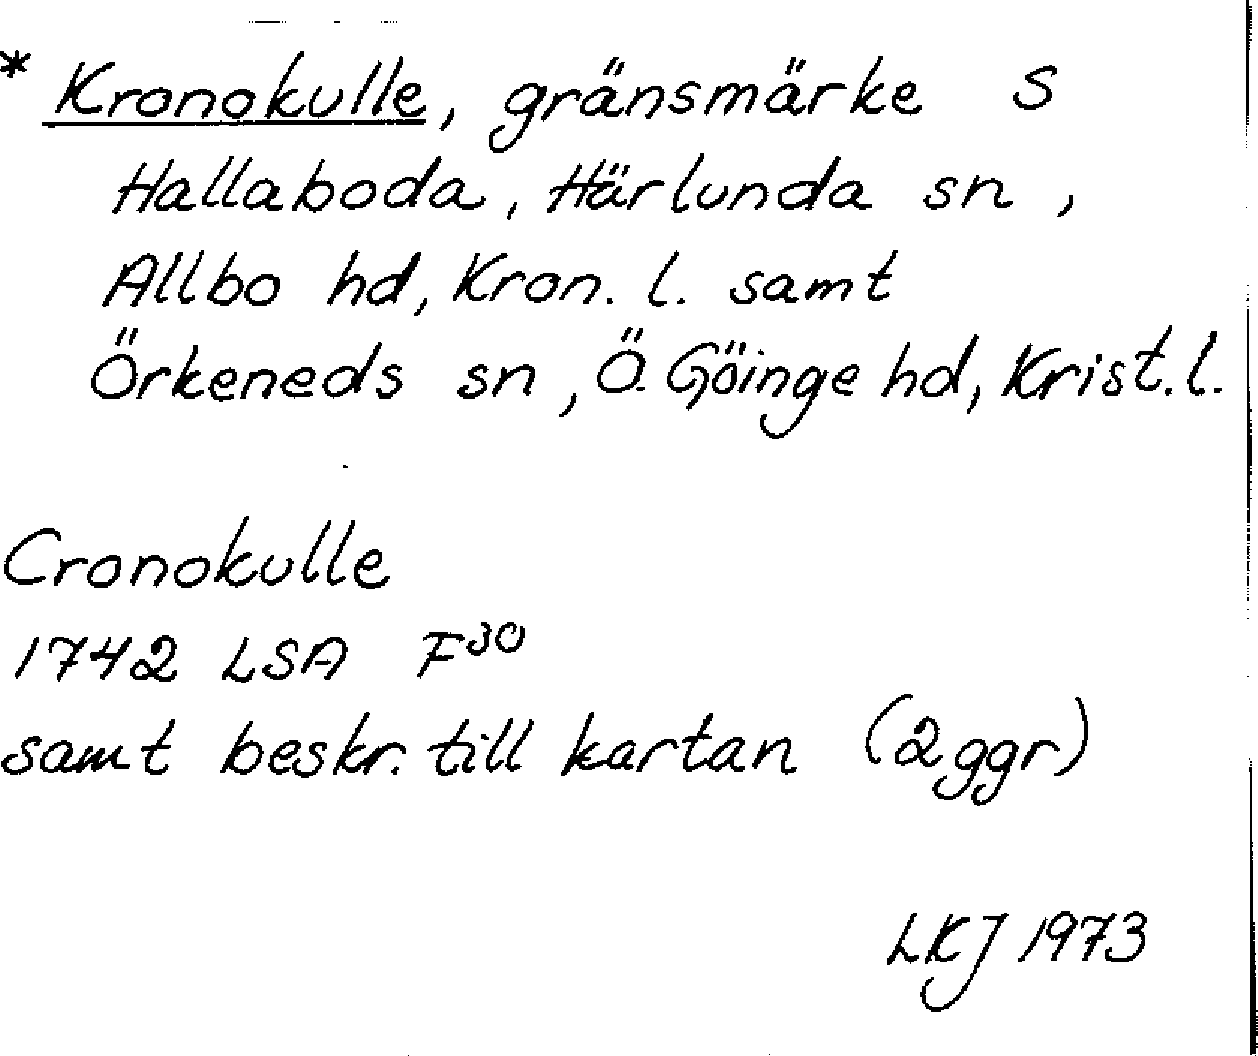 * Kronokulle, gränsmärke S
Hallaboda, Härlunda sn,
Allbo hd, Kron. l. samt
Örkeneds sn, Ö. Göinge hd, Krist. l.
Cronokulle
1742 LSA F30
samt beskr. till kartan (2ggr)
LKJ 1973